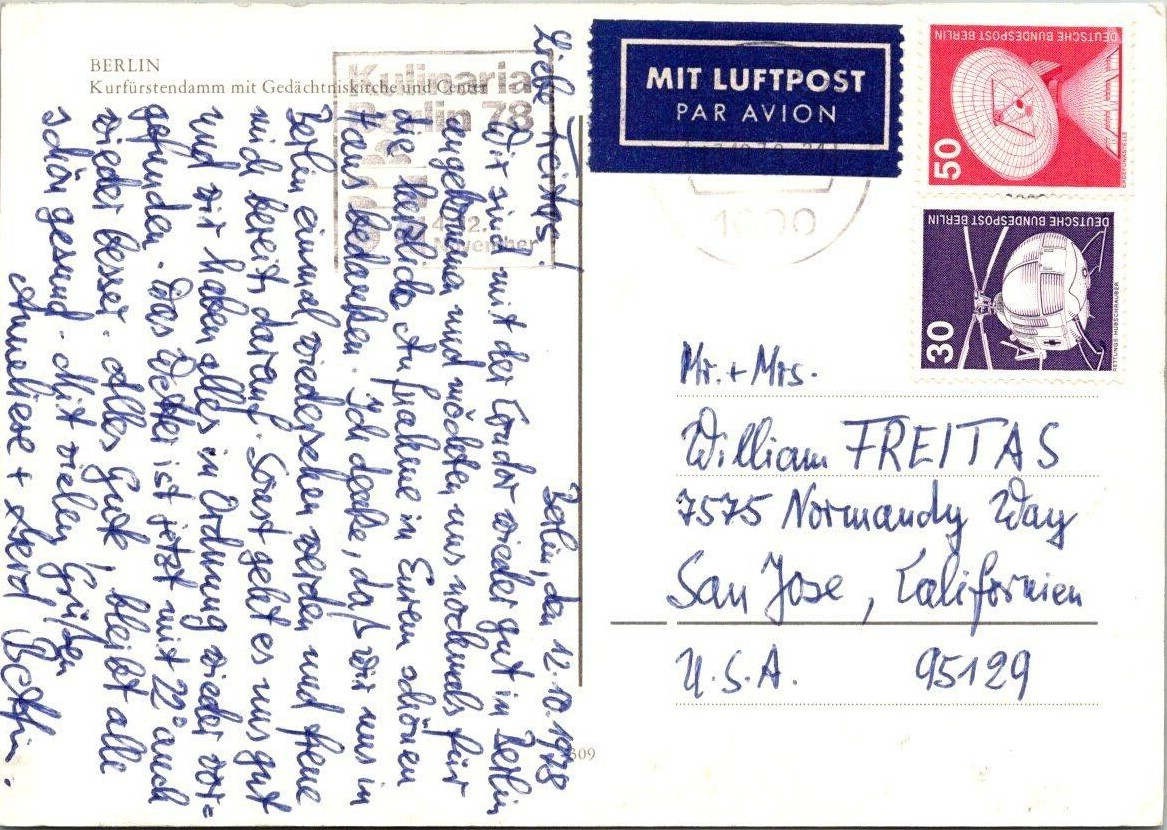 BERLIN
Kurfürstendamm mit Gedächtniskirche und Center
Kulinaria
Berlin 78
November
MIT LUFTPOST
PAR AVION
1000
DEUTSCHE BUNDESPOST BERLIN
50
ERDEFUNKSTELLE
DEUTSCHE BUNDESPOST BERLIN
30
RETTUNGS-HUBSCHRAUBER
Berlin, den 12.10.1978
Liebe Freitas!
Wir sind mit der Condor wieder gut in Berlin
angekommen und möchten uns nochmals für
die herzliche Aufnahme in Eurem schönen
Haus bedanken. Ich denke, daß wir uns in
Berlin einmal wiedersehen werden und freue
mich bereits darauf. Sonst geht es uns gut
und wir haben alles in Ordnung wieder vor=
gefunden. Das Wetter ist jetzt mit 22° auch
wieder besser. Alles Gute, bleibt alle
schön gesund. Mit vielen Grüßen
Anneliese + Gerd
Mr. + Mrs.
William FREITAS
7575 Normandy Way
San Jose, Californien
U.S.A. 95129
309